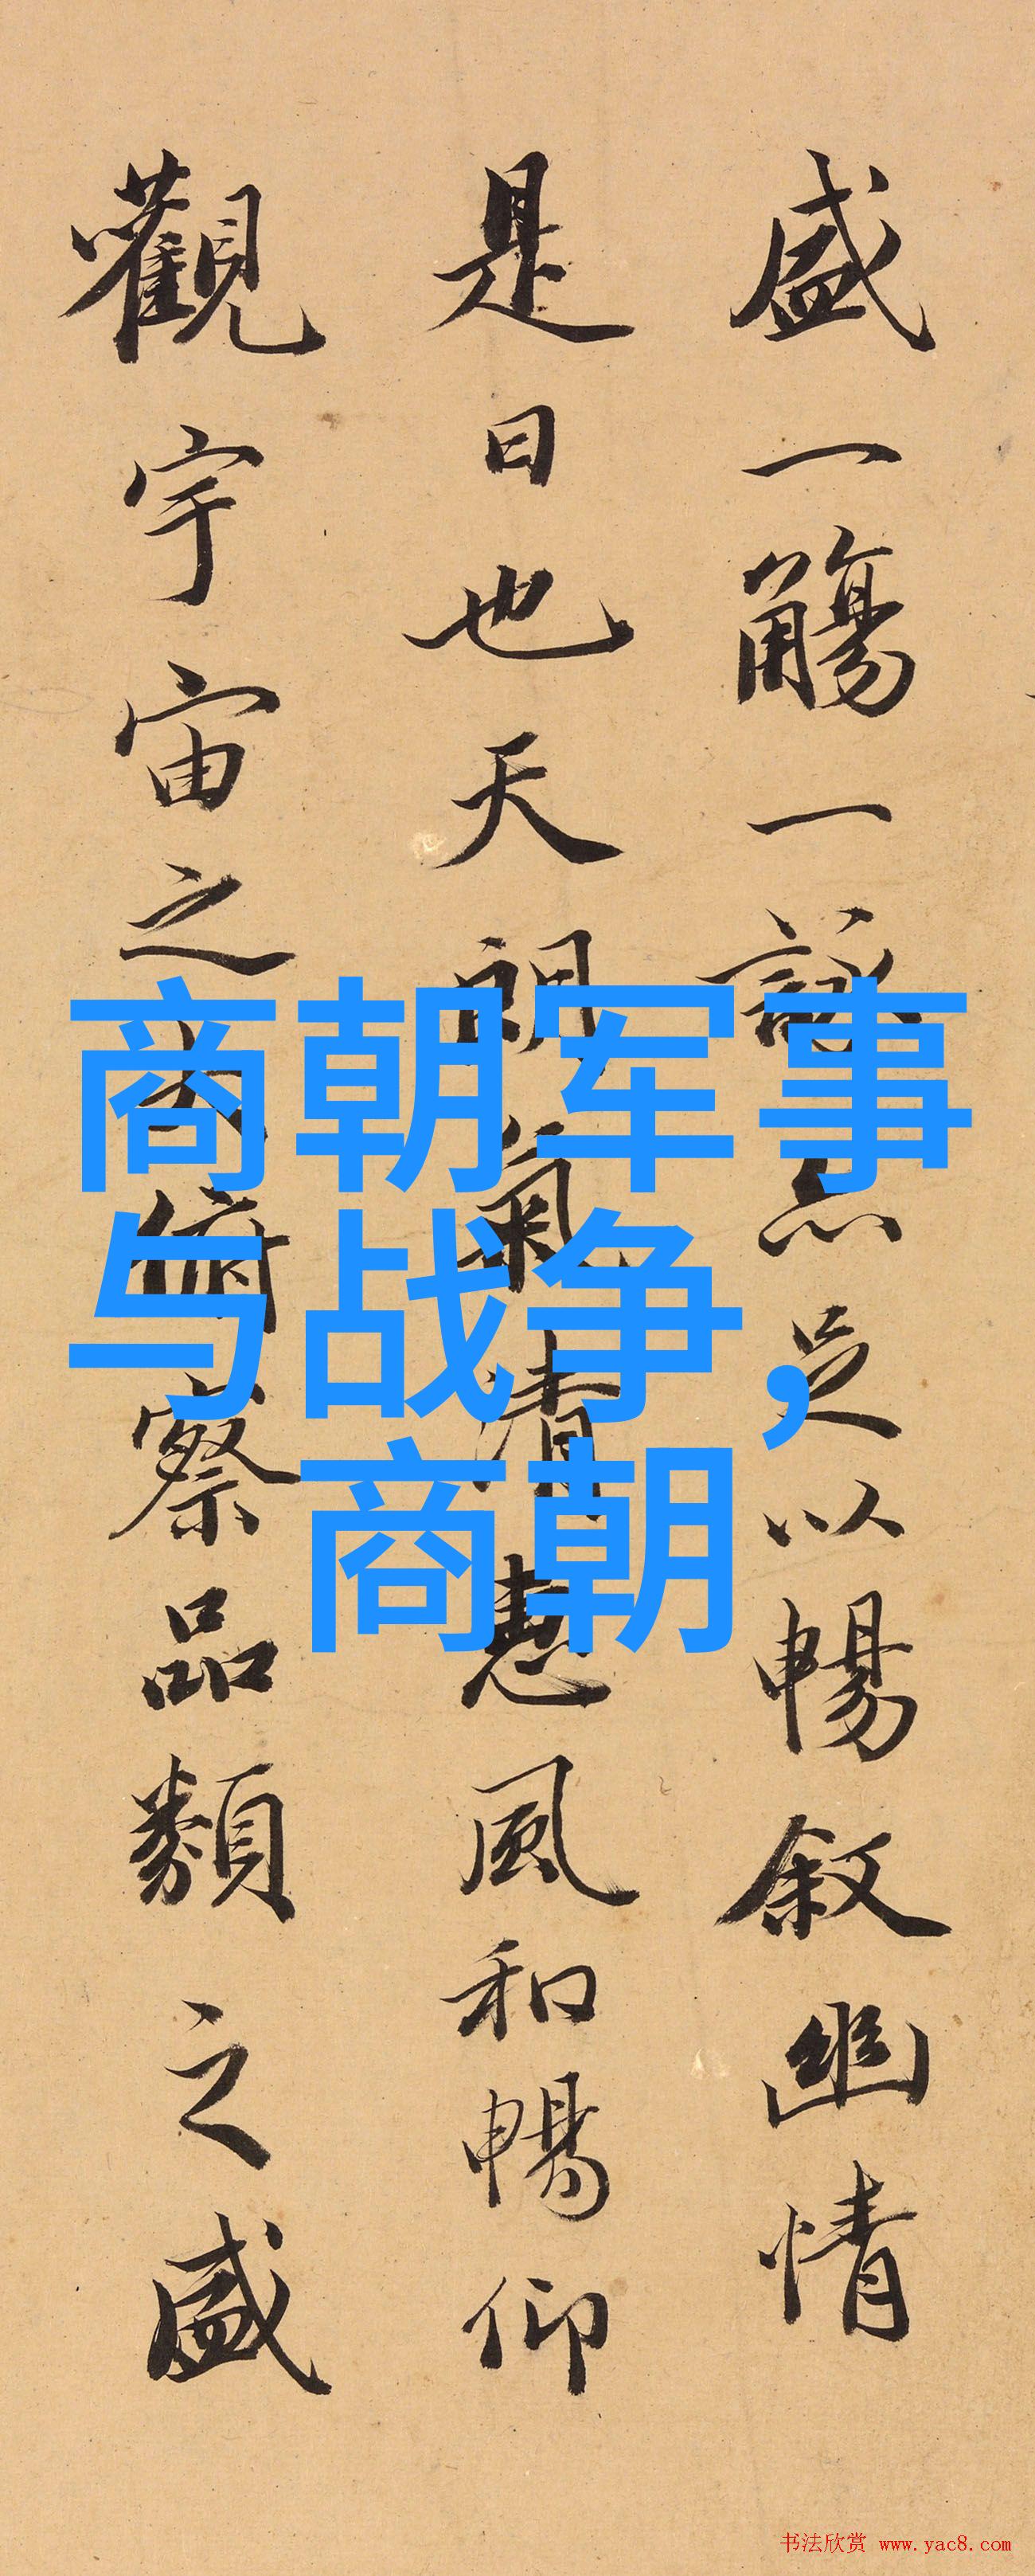 盛一觴一詠亦足以暢叙幽情
是日也天朗氣清惠風和暢仰
觀宇宙之大俯察品類之盛
商朝军事
与战争，
商朝
书法欣赏 www.yac8.com